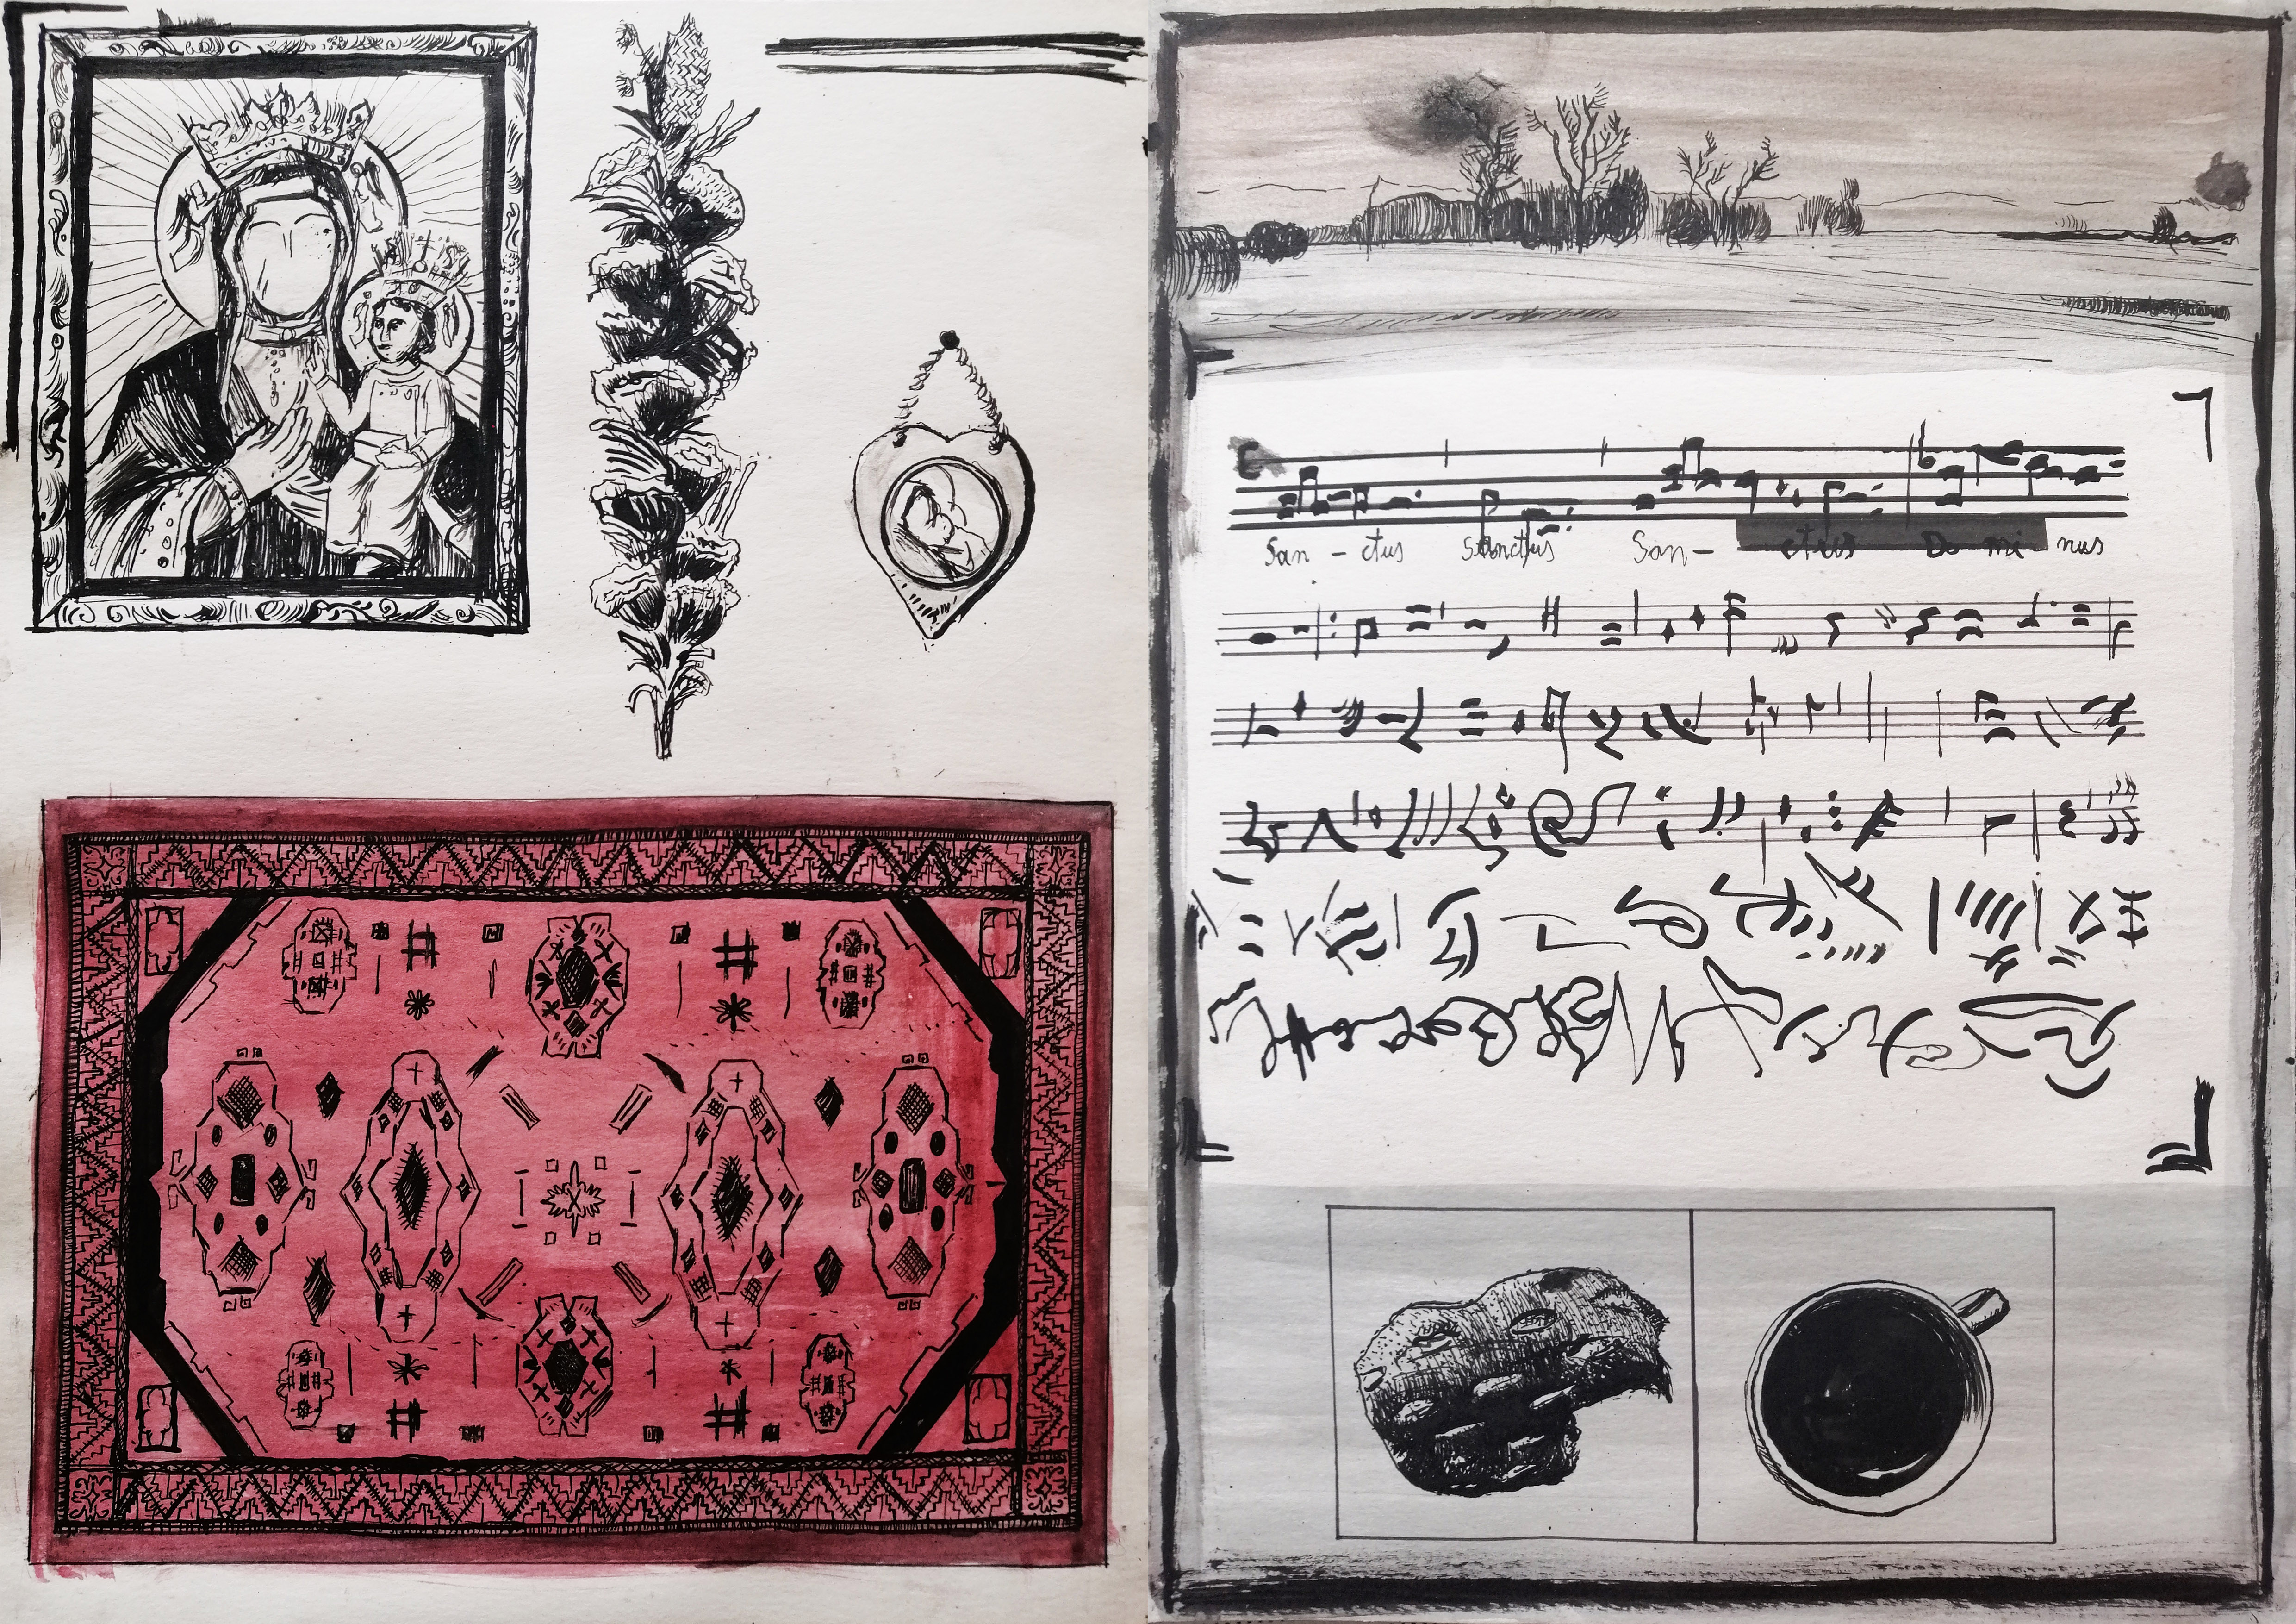 San - ctus Sanctus San - ctus Do mi - nus